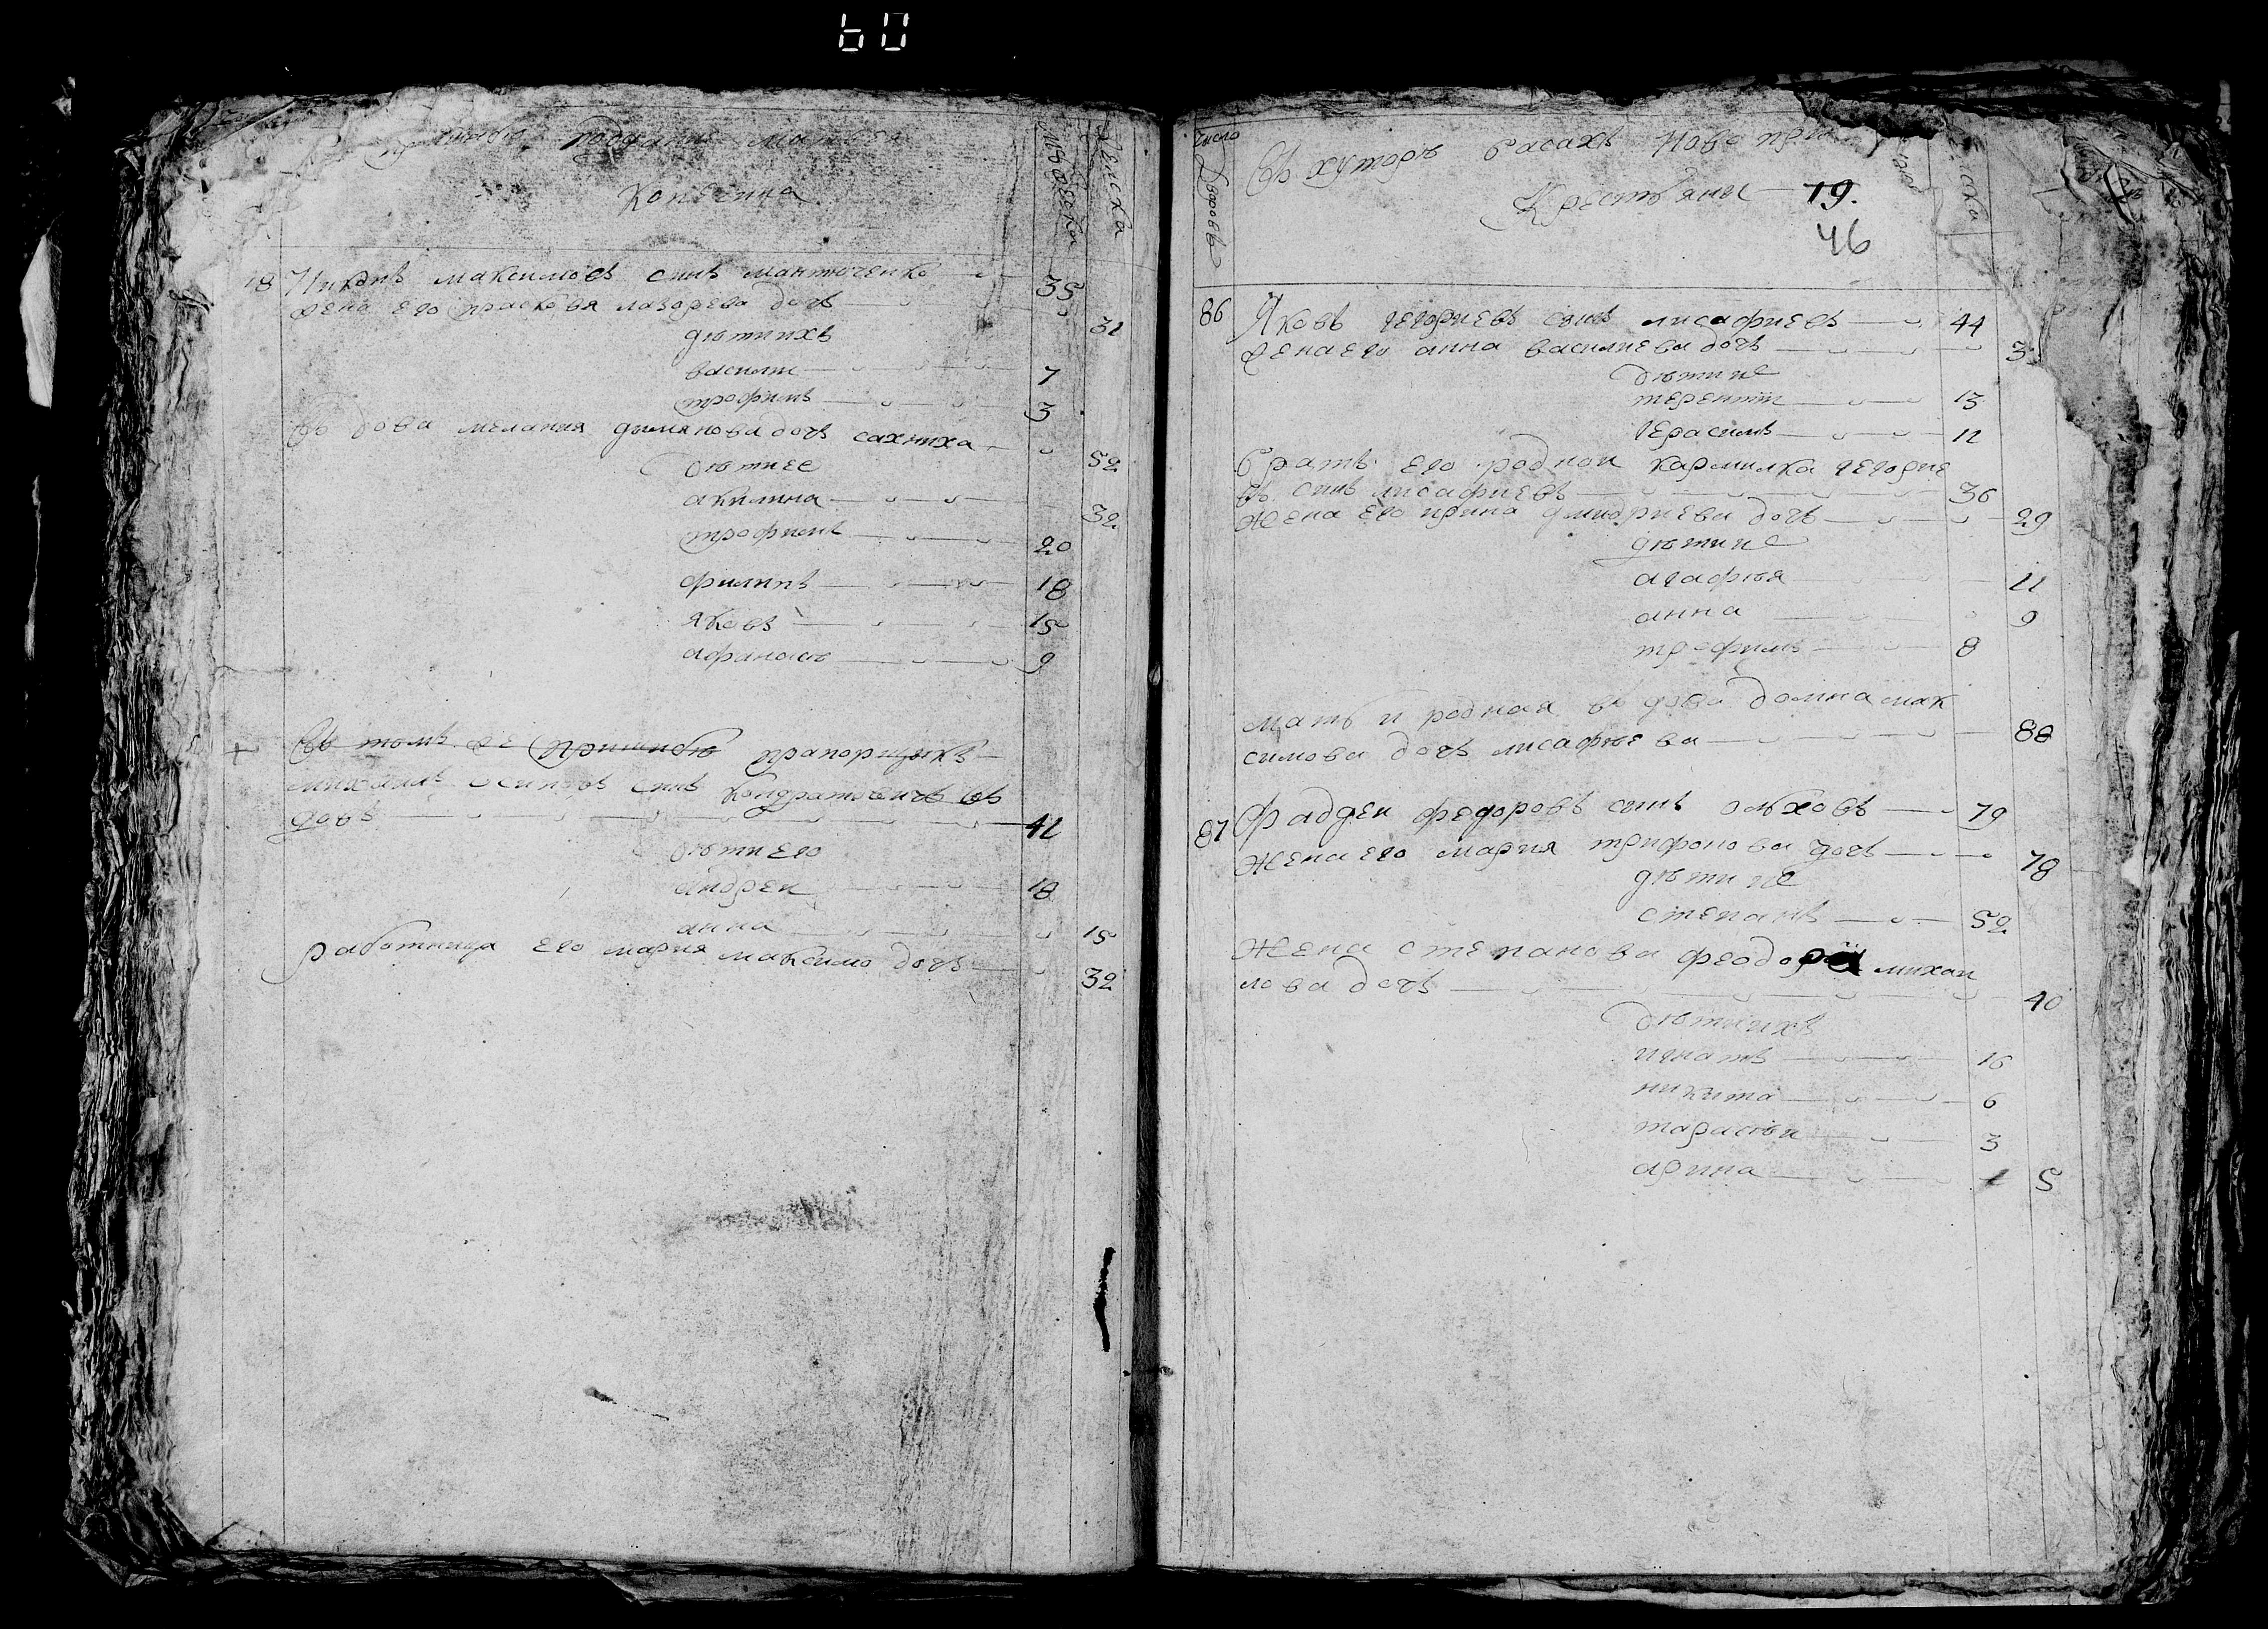 60
поддание матвея
Копецина
Мужеска
Женска
18 Никонъ максимовъ синъ мантюченко 35
Жена его прасковя лазорева дочь 31
дѣти ихъ
василии 7
трофимъ 3
Вдова мелания дмянова дочь сахниха 52
дѣти ее
акилина 32
трофимъ 20
филипъ 18
яковъ 15
афанасъ 9
Въ томъ же
михаилъ осиповъ синъ
довъ 41
дѣти его
андреи 18
анна 15
работница его мария максимо дочъ 32
число
Дворовъ
Въ хуторѣ басахъ Ново
Крестъяны 19.
46
86 Яковъ гегориевъ синъ лисафиевъ 44
Жена его анна василиева дочъ 3
дѣти ие
терентии 13
герасимъ 12
братъ его роднои кармилка гегорие
въ синъ лисафиевъ 36
Жена его ирина дмидриева дочъ 29
дѣти ие
агафѣя 11
анна 9
трофимъ 8
мать и родная вдова домна мак
симова дочъ лисафѣева 88
87 Фаддеи федоровъ синъ олховъ 79
Жена его мария трифонова дочъ 78
дѣти ие
степанъ 52
Жена степанова феодора михаи
лова дочъ 40
дѣти ихъ
игнатъ 16
никита 6
тарасѣи 3
арина 5